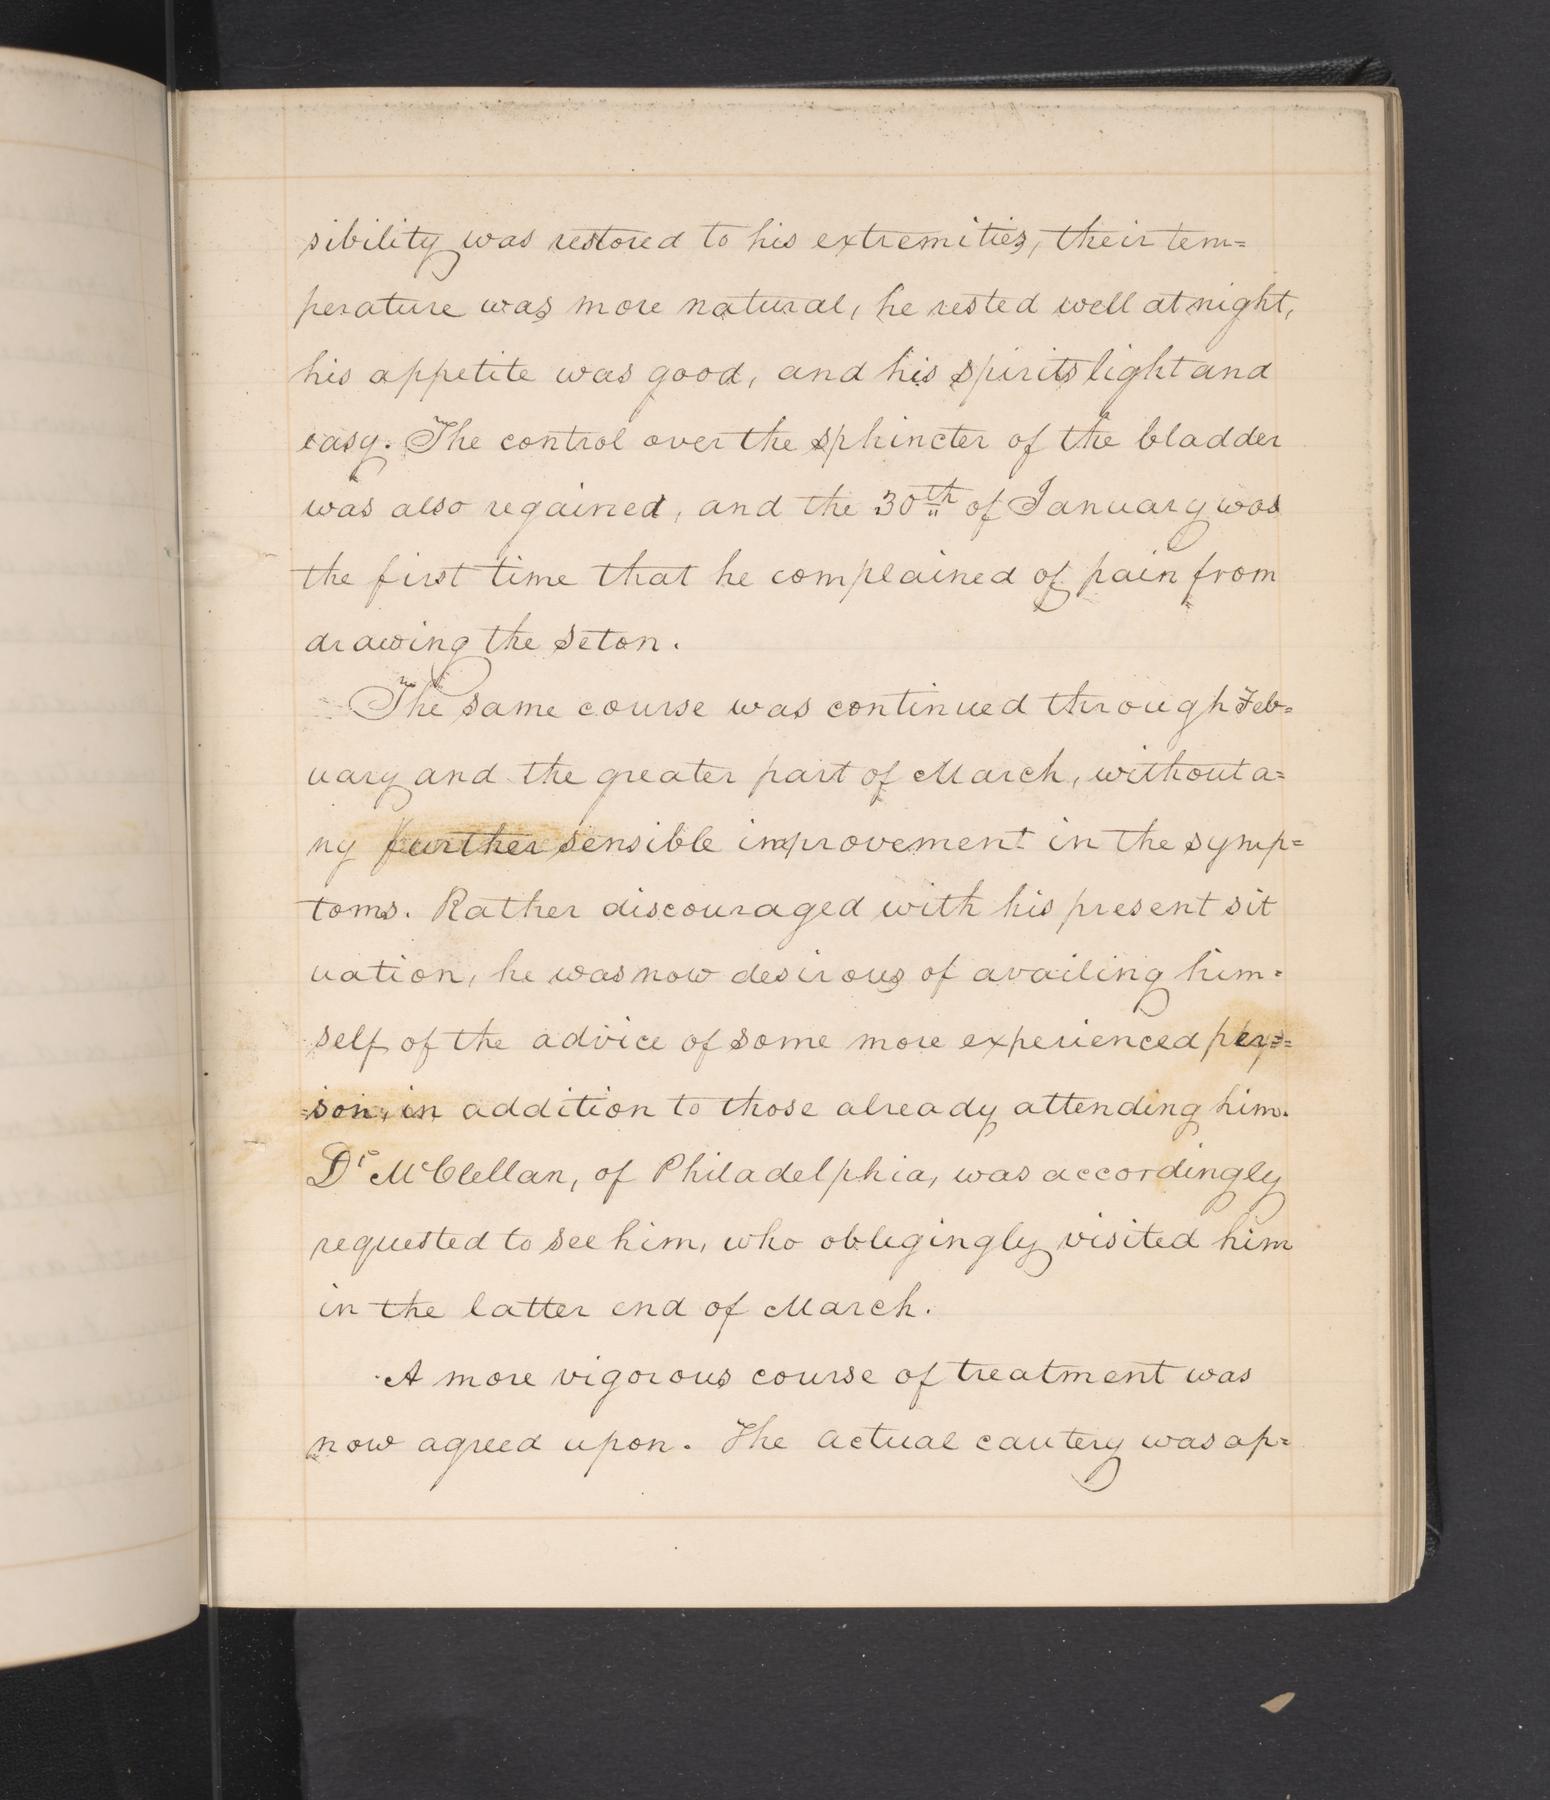 sibility was restored to his extremities, their tem=
perature was more natural, he rested well at night,
his appetite was good, and his spirits light and
easy. The control over the sphincter of the bladder
was also regained, and the 30th of January was
the first time that he complained of pain from
drawing the seton.
The same course was continued through Feb=
uary and the greater part of March, without a=
ny further sensible improvement in the symp=
toms. Rather discouraged with his present sit
uation, he was now desirous of availing him=
self of the advice of some more experienced per=
=son, in addition to those already attending him.
Dr McClellan, of Philadelphia, was accordingly
requested to see him, who obligingly visited him
in the latter end of March.
A more vigorous course of treatment was
now agreed upon. The actual cautery was ap=